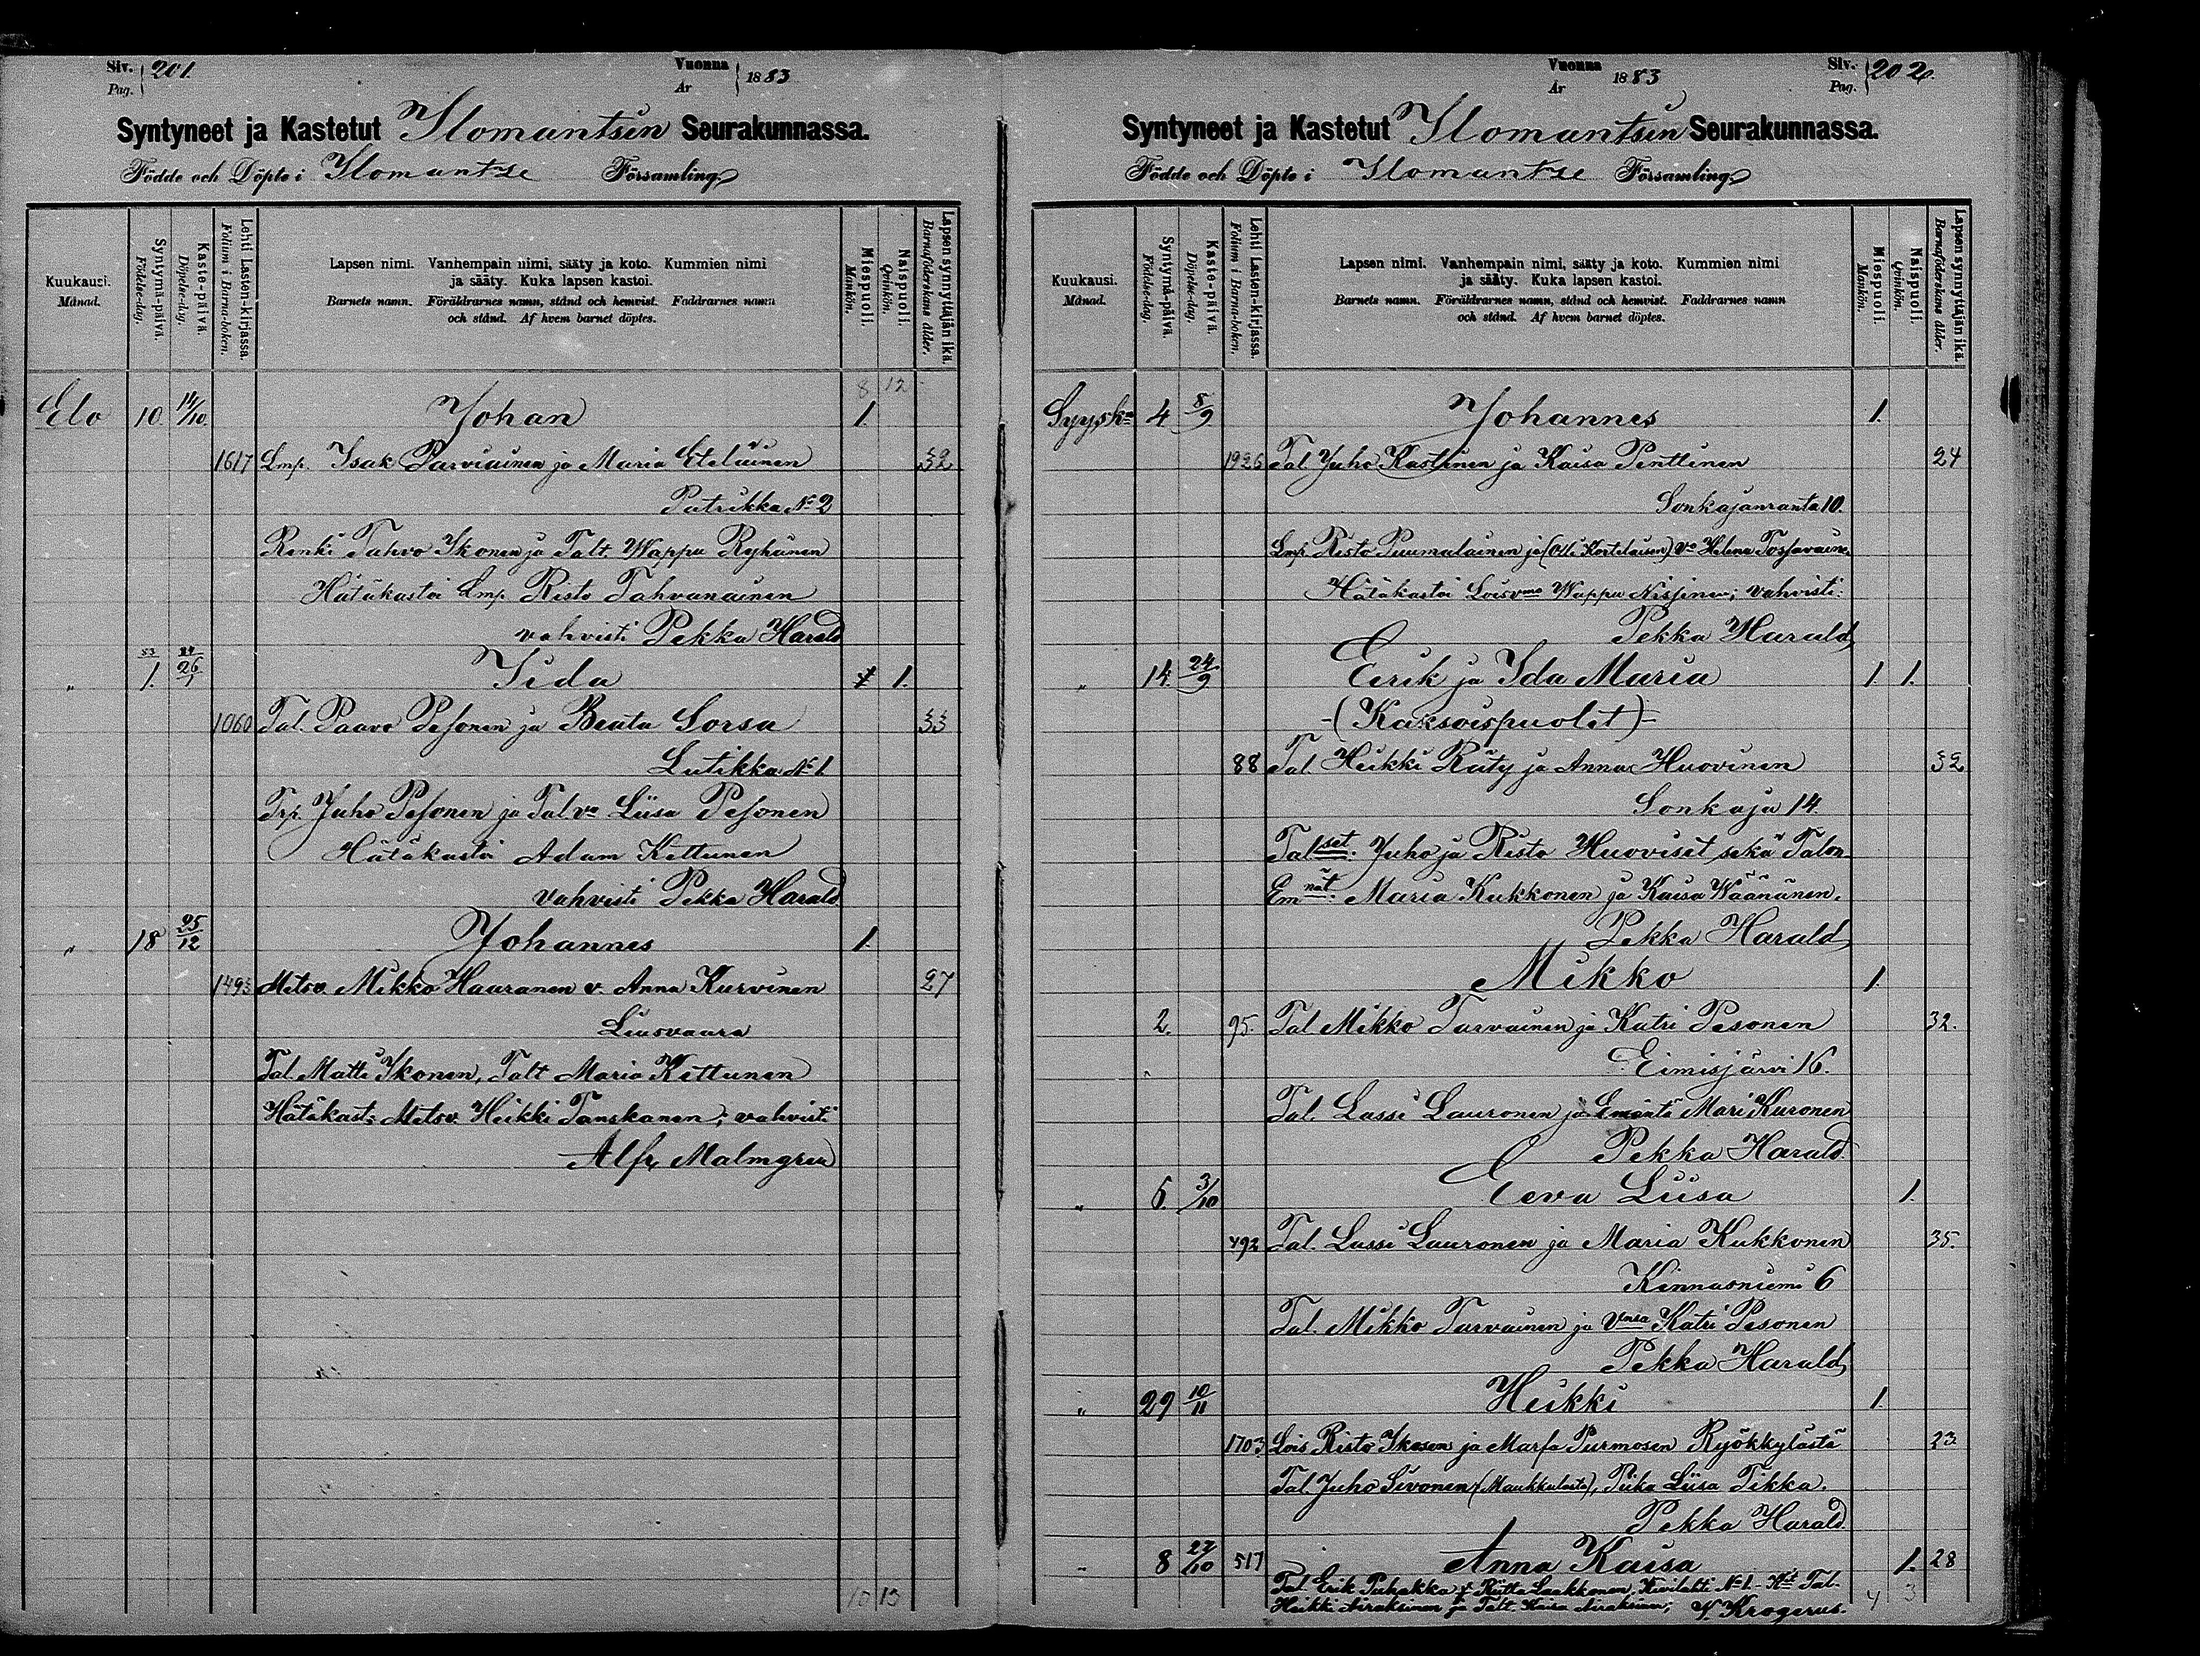 Siv. Pag. 201. Vuonna År 1883
Syntyneet ja Kastetut Ilomantsin Seurakunnassa.
Födde och Döpte i Ilomantsi Församling
Kuukausi. Månad.
Syntymä-päivä. Födelse-dag.
Kaste-päivä. Döpelse-dag.
Lehti Lasten-kirjassa. Folium i Barna-boken.
Lapsen nimi. Vanhempain nimi, sääty ja koto. Kummien nimi
ja sääty. Kuka lapsen kastoi.
Barnets namn. Föräldrarnes namn, stånd och hemvist. Faddrarnes namn
och stånd. Af hvem barnet döptes.
Miespuoli. Mankön.
Naispuoli. Qvinkön.
Lapsen synnyttäjän ikä. Barnaföderskans ålder.
8 12
Elo 10. 14/10. Johan 1.
1617 Lmp. Isak Parviainen ja Maria Eteläinen 32
Putrikka No 2
Renki Tahvo Ikonen ja Talt. Wappu Ryhänen
Hätäkastoi Lmp. Risto Tahvanainen
vahvisti Pekka Harald
83 84
" 1. 26/1 Iida 1.
1060 Tal. Paavo Pesonen ja Beata Sorsa 33
Lutikka No 1
Trp. Juho Pesonen ja Talva Liisa Pesonen
Hätäkastoi Adam Kettunen
vahvisti Pekka Harald
" 18 25/12 Johannes 1.
1493 Metsv. Mikko Hauranen v. Anna Kurvinen 27
Liusvaara
Tal. Matti Ikonen, Talt Maria Kettunen
Hätäkast: Metsv. Heikki Tanskanen; vahvisti
Alfr. Malmgren
10 13
Vuonna År 1883 Siv. Pag. 202.
Syntyneet ja Kastetut Ilomantsin Seurakunnassa.
Födde och Döpte i Ilomantsi Församling
Kuukausi. Månad.
Syntymä-päivä. Födelse-dag.
Kaste-päivä. Döpelse-dag.
Lehti Lasten-kirjassa. Folium i Barna-boken.
Lapsen nimi. Vanhempain nimi, sääty ja koto. Kummien nimi
ja sääty. Kuka lapsen kastoi.
Barnets namn. Föräldrarnes namn, stånd och hemvist. Faddrarnes namn
och stånd. Af hvem barnet döptes.
Miespuoli. Mankön.
Naispuoli. Qvinkön.
Lapsen synnyttäjän ikä. Barnaföderskans ålder.
Syysk. 4 8/9 Johannes 1.
1926 Tal Juho Kastinen ja Kaisa Penttinen 24
Sonkajanranta 10.
Lmp. Risto Puumalainen ja (Olli Kortelaisen) va Helena Tossavainen
Hätäkastoi Loisvmo Wappu Nissinen; vahvisti:
Pekka Harald
" 14. 24/9 Eerik ja Ida Maria 1 1.
(Kaksoispuolet)
88 Tal. Heikki Räty ja Anna Huovinen 32
Sonkaja 14.
Talset: Juho ja Risto Huoviset sekä Talon
Emnät: Maria Kukkonen ja Kaisa Wäänänen.
Pekka Harald
Mikko 1.
2. 95. Tal Mikko Turvainen ja Katri Pesonen 32.
" Eimisjärvi 16.
Tal. Lassi Lauronen ja Emäntä Mari Kuronen
Pekka Harald
" 6. 3/10 Eeva Liisa 1.
492 Tal. Lassi Lauronen ja Maria Kukkonen 35.
Kinnasniemi 6
Tal. Mikko Turvainen ja Vmsa Katri Pesonen
Pekka Harald
" 29 10/11 Heikki 1.
1703 Lois Risto Ikosen ja Marfa Purmosen Ryökkylästä 23
Tal. Juho Sivonen (Maukkulasta), Piika Liisa Tikka.
Pekka Harald
" 8 27/10 517 Anna Kaisa 1. 28
Tal. Erik Puhakka v. Riitta Laakkonen, Kivilahti No 1 - Kt Tal.
Heikki Airaksinen ja Talt. Kaisa Airaksinen; V. Krogerus.
4 3